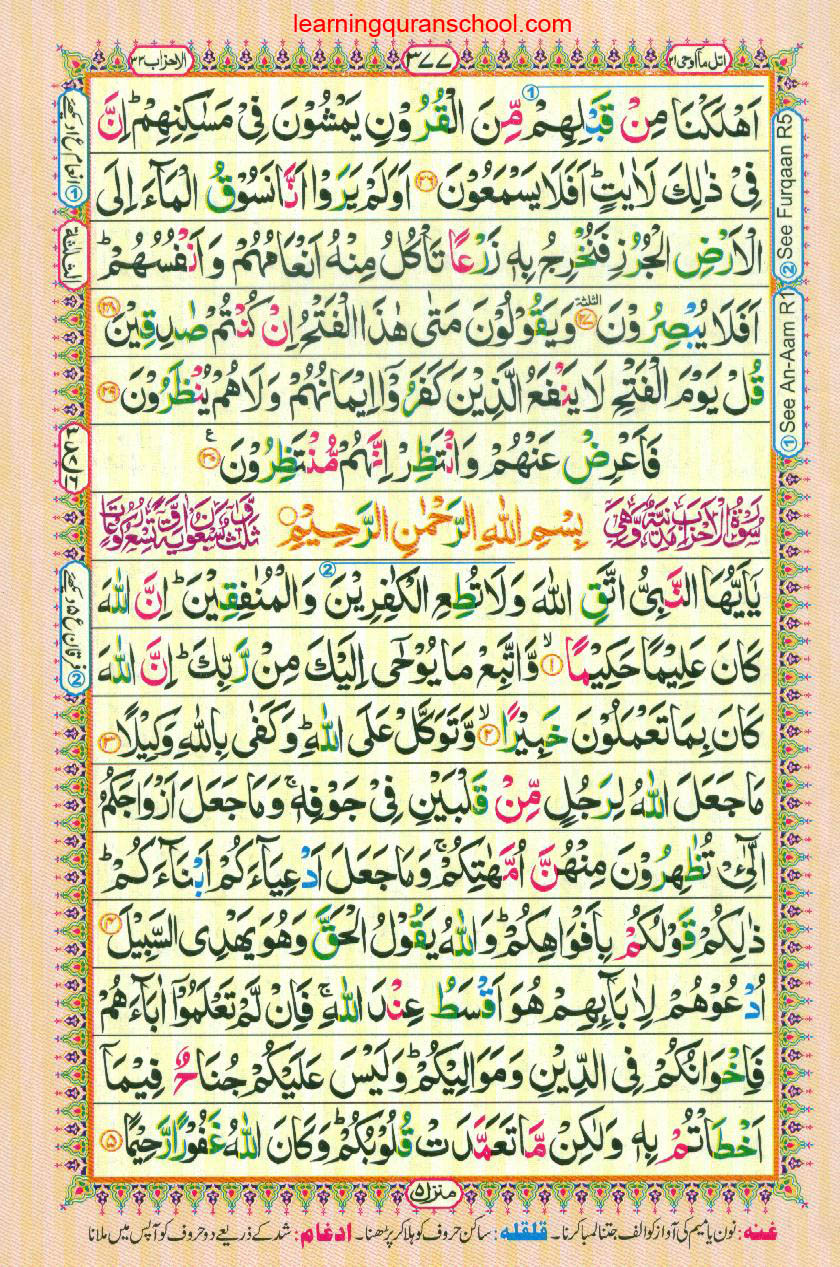 learningquranschool.com
اتل مآ اوحی ۲۱
۳۷۷
الاحزاب ۳۳
اَهْلَكْنَا مِنْ قَبْلِهِمْ مِّنَ الْقُرُوْنِ يَمْشُوْنَ فِیْ مَسٰكِنِهِمْ ؕ اِنَّ
فِیْ ذٰلِكَ لَاٰیٰتٍ ؕ اَفَلَا یَسْمَعُوْنَ ۲۶ اَوَلَمْ یَرَوْا اَنَّا نَسُوْقُ الْمَآءَ اِلَی
الْاَرْضِ الْجُرُزِ فَنُخْرِجُ بِهٖ زَرْعًا تَاْكُلُ مِنْهُ اَنْعَامُهُمْ وَ اَنْفُسُهُمْ ؕ
اَفَلَا یُبْصِرُوْنَ ۲۷ الثلثة وَ یَقُوْلُوْنَ مَتٰی هٰذَا الْفَتْحُ اِنْ كُنْتُمْ صٰدِقِیْنَ ۲۸
قُلْ یَوْمَ الْفَتْحِ لَا یَنْفَعُ الَّذِیْنَ كَفَرُوْۤا اِیْمَانُهُمْ وَ لَا هُمْ یُنْظَرُوْنَ ۲۹
فَاَعْرِضْ عَنْهُمْ وَ انْتَظِرْ اِنَّهُمْ مُّنْتَظِرُوْنَ ۳۰ ع
سُوْرَةُ الْاَحْزَابِ مَدَنِیَّةٌ وَّهِیَ بِسْمِ اللّٰهِ الرَّحْمٰنِ الرَّحِیْمِ ثَلٰثٌ وَّسَبْعُوْنَ اٰیَةً وَّتِسْعُ رُكُوْعَاتٍ
یٰۤاَیُّهَا النَّبِیُّ اتَّقِ اللّٰهَ وَ لَا تُطِعِ الْكٰفِرِیْنَ وَ الْمُنٰفِقِیْنَ ؕ اِنَّ اللّٰهَ
كَانَ عَلِیْمًا حَكِیْمًا ۱ۙ وَّ اتَّبِعْ مَا یُوْحٰۤی اِلَیْكَ مِنْ رَّبِّكَ ؕ اِنَّ اللّٰهَ
كَانَ بِمَا تَعْمَلُوْنَ خَبِیْرًا ۲ۙ وَّ تَوَكَّلْ عَلَی اللّٰهِ ؕ وَ كَفٰی بِاللّٰهِ وَكِیْلًا ۳
مَا جَعَلَ اللّٰهُ لِرَجُلٍ مِّنْ قَلْبَیْنِ فِیْ جَوْفِهٖ ۚ وَ مَا جَعَلَ اَزْوَاجَكُمُ
الّٰٓـِٔیْ تُظٰهِرُوْنَ مِنْهُنَّ اُمَّهٰتِكُمْ ۚ وَ مَا جَعَلَ اَدْعِیَآءَكُمْ اَبْنَآءَكُمْ ؕ
ذٰلِكُمْ قَوْلُكُمْ بِاَفْوَاهِكُمْ ؕ وَ اللّٰهُ یَقُوْلُ الْحَقَّ وَ هُوَ یَهْدِی السَّبِیْلَ ۴
اُدْعُوْهُمْ لِاٰبَآىِٕهِمْ هُوَ اَقْسَطُ عِنْدَ اللّٰهِ ۚ فَاِنْ لَّمْ تَعْلَمُوْۤا اٰبَآءَهُمْ
فَاِخْوَانُكُمْ فِی الدِّیْنِ وَ مَوَالِیْكُمْ ؕ وَ لَیْسَ عَلَیْكُمْ جُنَاحٌ فِیْمَاۤ
اَخْطَاْتُمْ بِهٖ وَ لٰكِنْ مَّا تَعَمَّدَتْ قُلُوْبُكُمْ ؕ وَ كَانَ اللّٰهُ غَفُوْرًا رَّحِیْمًا ۵
② See Furqaan R5
① See An-Aam R1
الثلثة
② فرقان ع ۵ دیکھئے
منزل ۵
غنہ : نون یا میم کی آواز کو الف جتنا لمبا کرنا ۔ قلقلہ : ساکن حروف کو ہلا کر پڑھنا ۔ ادغام : شد کے ذریعے دو حروف کو آپس میں ملانا